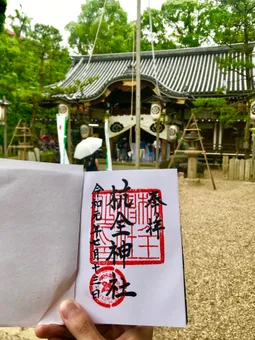 奉拝
杭全神社
令和元年七月十三日